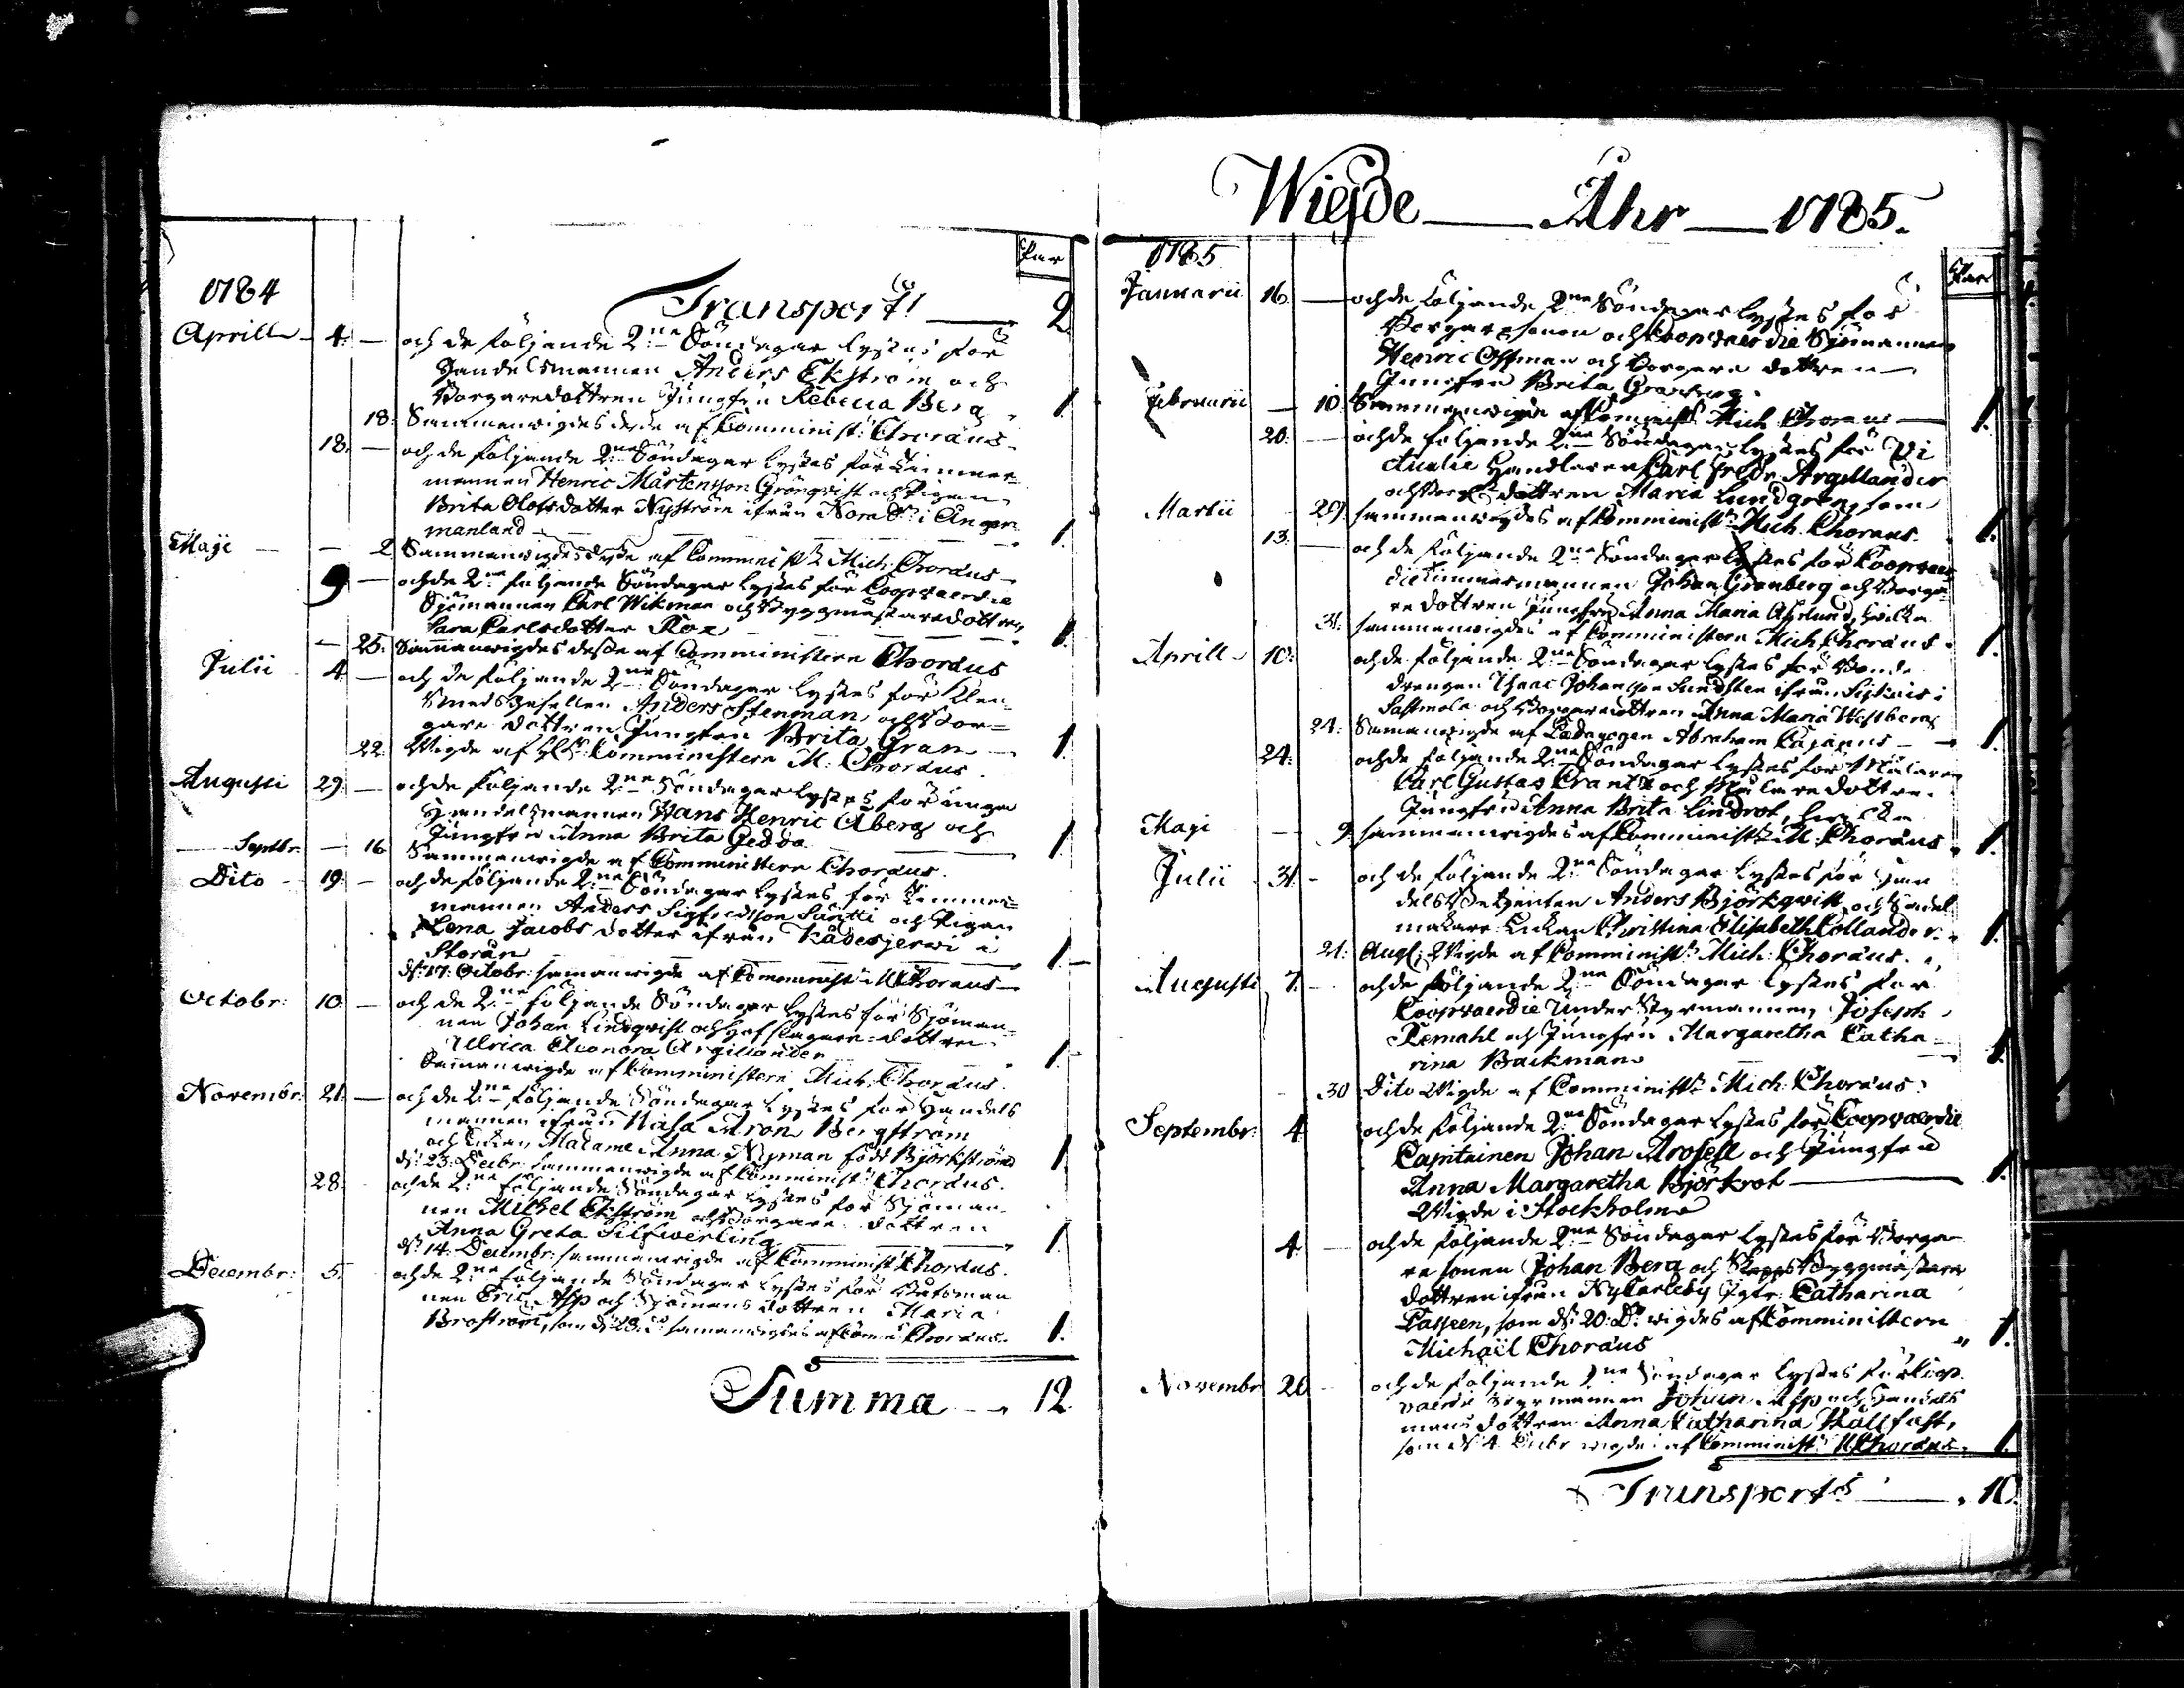 Par
1784
Transport! — 2
Aprill 4. — och de följande 2ne Söndagar lystes för
Handelsmannen Anders Ekström och
Borgaredottren Jungfru Rebecca Berg 1.
18. Sammanwigdes desse af Comminist: Choræus
18. — och de följande 2ne Söndagar lystes för Timmer-
mannen Henric Mårtensson Grönqvist och Pigan
Brita Olofsdotter Nyström ifrån Nora Sn iÅnger
manland 1.
Maji — 2. Sammanwigdes desse af Comminist: Mich: Choræus
9 — och de 2ne följande Söndagar lystes för Coopvaerdie
Sjömannen Carl Wikman och Byggmästaredottren
Sara Carlsdotter Rox 1.
25. Sammanwigdes desse af Comministern Choræus
Julii 4 — och de följande 2ne Söndagar lystes för Klen
Smeds Gesellen Anders Stenman och Bor=
gare dottren Jungfru Brita Gran 1
22. Wigde af Comministern M. Choræus.
Augusti 29. — och de följande 2ne Söndagar lystes för unga
Handelsmannen Hans Henric Åberg och
Jungfru Anna Brita Gedda 1
Septbr. — 16 Sammanwigde af Comministern Choræus.
Dito 19. — och de följande 2ne Söndagar lystes för Timmer=
mannen Anders Sigfredsson Santti och Pigan
Lena Jacobs dotter ifrån Kådesjerwi i
Storån 1.
dn 17. Octobr: samanwigde af Comminist: M Choræus
Octobr: 10. — och de 2ne följande Söndagar lystes för Sjöman-
nen Johan Lindqvist och Hofslagare-dottren
Ulrica Eleonora Argillander 1.
Samanwigde af Comministern Mich: Choræus.
Novembr: 21. — och de 2ne följande Söndagar lystes för Handels
mannen ifrån Wasa Aron Bergström
och Enkan Madame Anna Nyman född Björkström 1
dn 23. Decbr sammanwigde af Comminist: Choræus.
28. och de 2ne följande Söndagar lystes för Sjöman
nen Michel Ekström och Borgare dottren
Anna Greta Silfwerling 1.
dn 14. Decembr: sammanwigde af Comminist: Choræus.
Decembr: 5. och de 2ne följande Söndagar lystes för Båtsman
nen Eric Asp och Sjömans dottren Maria
Broström, som dn 28. samanwigdes af Com: Choræus. 1.
Summa — 12
Wiegde — Åhr — 1785.
1785
Par
Januarii 16. — och de följande 2ne Söndagar lystes för
Borgaresonen och Coopvaerdie Sjömannen
Henric Ohman och Borgare dottren
Jungfru Brita Granberg.
Februarii — 10. Sammanwigde af Comminist: Mich: Choræus 1.
20. — och de följande 2ne Söndagar lystes för Vi
ctualie Handlaren Carl Fredr: Argillander
och Borg: dottren Maria Lundgren, som
Martii 29. sammanwigdes af Comminist: Mich: Choræus. 1.
13. — och de följande 2ne Söndagar lystes för Coopvaer
die Timmermannen Johan Granberg och Borga-
re dottren Jungfru Anna Maria Ahlund, hvilka
31. sammanwigdes af Comministern Mich: Choræus 1.
Aprill 10. och de följande 2ne Söndagar lystes för Bonde
drengen Isaac Johansson Sundsten ifrån
Sastmola och Borgaredottren Anna Maria Westberg
24. Samanwigde af Pædagogen Abraham Cajanus 1.
24. och de följande 2ne Söndagar lystes för Målaren
Carl Gustaf Crantz och Målare dottren
Jungfru Anna Brita Lindrot, hwilka
Maji — 9. sammanwigdes af Comminist: M: Choræus 1.
Julii 31. — och de följande 2ne Söndagar lystes för Han
dels Betjenten Anders Björkqwist och Sadel
makare Enkan Christina Elisabeth Collander. 1.
21. Aug: Wigde af Comminist: Mich: Choræus.
Augusti 7. — och de följande 2ne Söndagar lystes för
Coopvaerdie Under Styrmannen Joseph
Remahl och Jungfru Margaretha Catha-
rina Backman 1.
30 Dito Wigde af Comminist: Mich: Choræus
Septembr: 4. och de följande 2ne Söndagar lystes för Coopvaerdie
Capitainen Johan Arosell och Jungfru
Anna Margaretha Björkrot 1.
Wigde i Stockholm
4. — och de följande 2ne Söndagar lystes för Borga-
re sonen Johan Berg och Skepps Byggmästare
dottren ifrån NyCarleby Jgfr: Catharina
Casseen, som dn 20. Do wigdes af Comministern
Michaël Choræus 1.
Novembr 20 och de följande 2ne Söndagar lystes för Coop
vaerdie Styrmannen Johan Asp och Handels
mans dottren Anna Catharina Hallfast,
som dn 4. Decbr wigde af Comminist: M Choræus. 1.
Transport — 10.